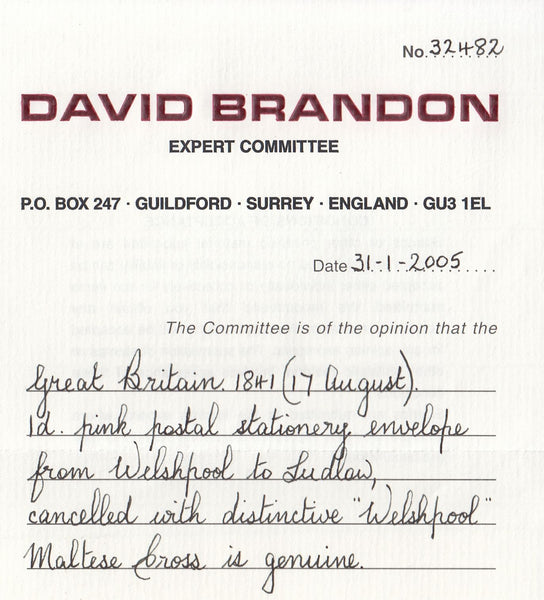 No. 32482
DAVID BRANDON
EXPERT COMMITTEE
P.O. BOX 247 · GUILDFORD · SURREY · ENGLAND · GU3 1EL
Date 31-1-2005
The Committee is of the opinion that the
Great Britain. 1841 (17 August).
1d. pink postal stationery envelope
from Welshpool to Ludlow,
cancelled with distinctive "Welshpool"
Maltese Cross is genuine.